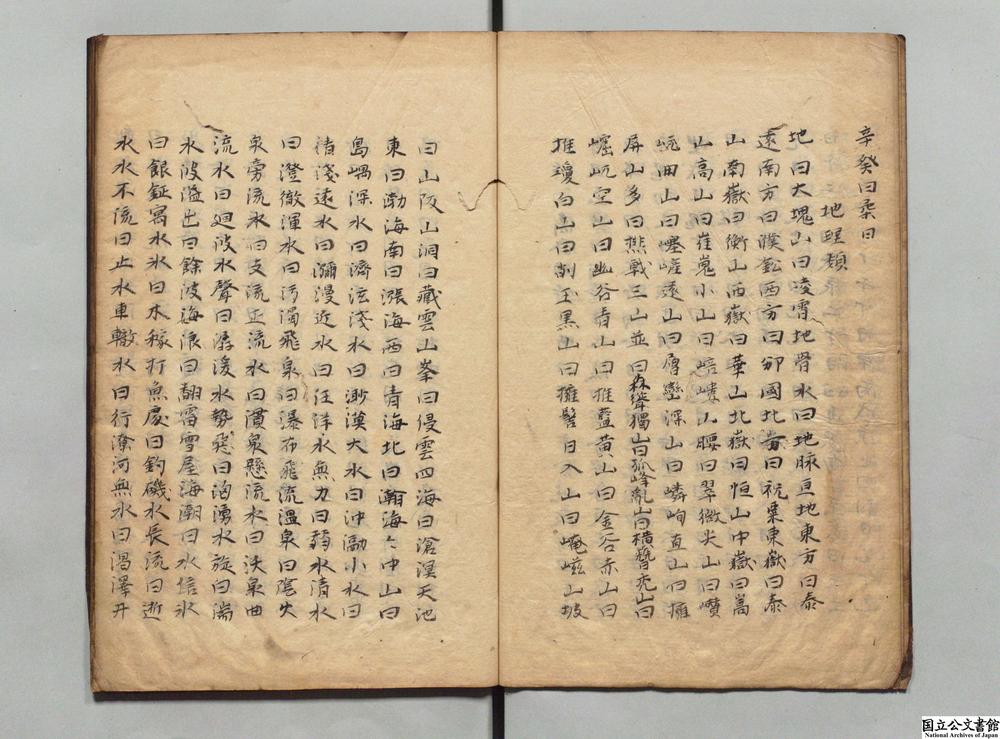 辛癸曰柔日
地理類
地曰大塊山曰凌霄地骨水曰地脉亘地東方曰泰
遠南方曰濮鈆西方曰邠國北方曰祝栗東嶽曰泰
山南嶽曰衡山西嶽曰華山北嶽曰恒山中嶽曰嵩
山高山曰崔嵬小山曰培塿山腰曰翠微尖山曰巑
岏曲山曰嶁嵯遠山曰層巒深山曰嶙峋直山曰攡
屏山多曰熊戟三山並曰森聳獨山曰孤峰亂山曰橫簪禿山曰
崛岉空山曰幽谷青山曰推藍黃山曰金谷赤山曰
推瓊白山曰削玉黑山曰擁髻日入山曰崦嵫山坡
曰山阪山洞曰藏雲山峯曰侵雲四海曰滄溟天池
東曰渤海南曰漲海西曰青海北曰瀚海々中山曰
島嶼深水曰濟泫淺水曰渺漠大水曰沖瀜小水曰
渚淺遠水曰瀰漫近水曰汪洋水無力曰弱水清水
曰澄徹渾水曰污濁飛泉曰瀑布飛流温泉曰陰火
泉旁流水曰支流正流水曰濆泉懸流水曰沃泉曲
流水曰廻波水聲曰潺湲水勢飛曰洶湧水旋曰湍
水波溢出曰餘波海浪曰翻雷雪屋海潮曰水信氷
曰銀鉦寫水氷曰木稼打魚處曰釣磯水長流曰逝
水水不流曰止水車轍水曰行潦河無水曰涸澤升
国立公文書館
National Archives of Japan